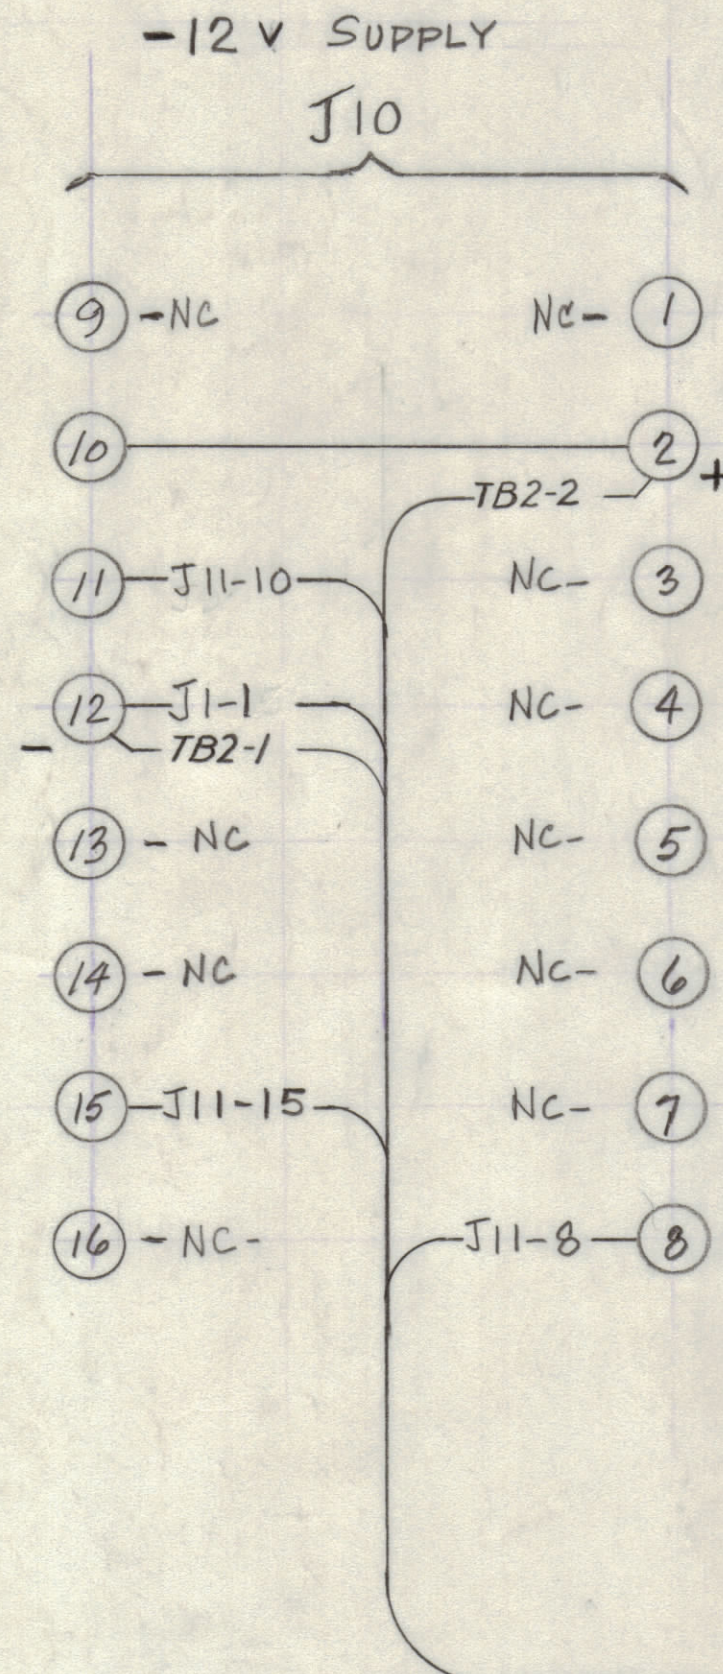 -12 V SUPPLY
J10
9 -NC NC- 1
10 2 +
TB2-2
11 J11-10 NC- 3
12 J1-1 NC- 4
- TB2-1
13 - NC NC- 5
14 - NC NC- 6
15 J11-15 NC- 7
16 - NC - J11-8 8